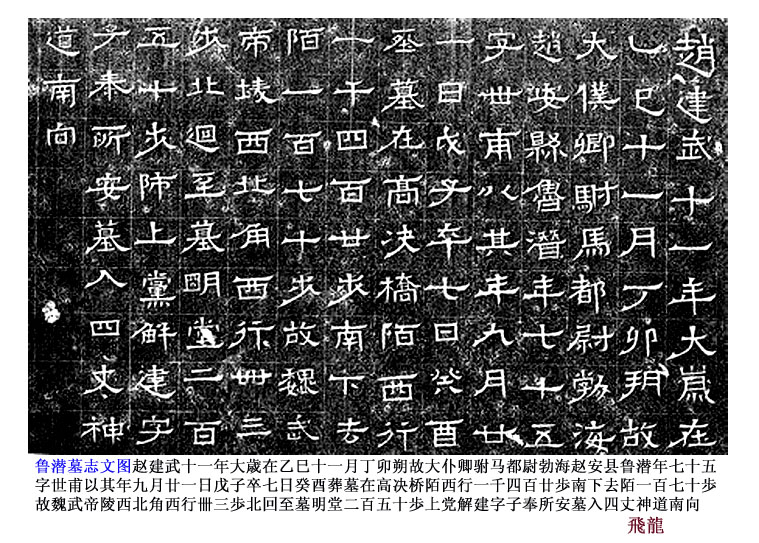 趙建武十一年大嵗在
乙巳十一月丁卯朔故
大僕卿駙馬都尉勃海
趙安縣魯潛年七十五
字世甫以其年九月廿
一日戊子卒七日癸酉
葬墓在高決橋陌西行
一千四百廿步南下去
陌一百七十步故魏武
帝陵西北角西行卌三
步北迴至墓明堂二百
五十步師上黨解建字
子奉所安墓入四丈神
道南向
鲁潜墓志文图赵建武十一年大歳在乙巳十一月丁卯朔故大仆卿駙马都尉勃海赵安县鲁潜年七十五
字世甫以其年九月廿一日戊子卒七日癸酉葬墓在高决桥陌西行一千四百廿歩南下去陌一百七十歩
故魏武帝陵西北角西行卌三歩北回至墓明堂二百五十歩上党解建字子奉所安墓入四丈神道南向
飛龍